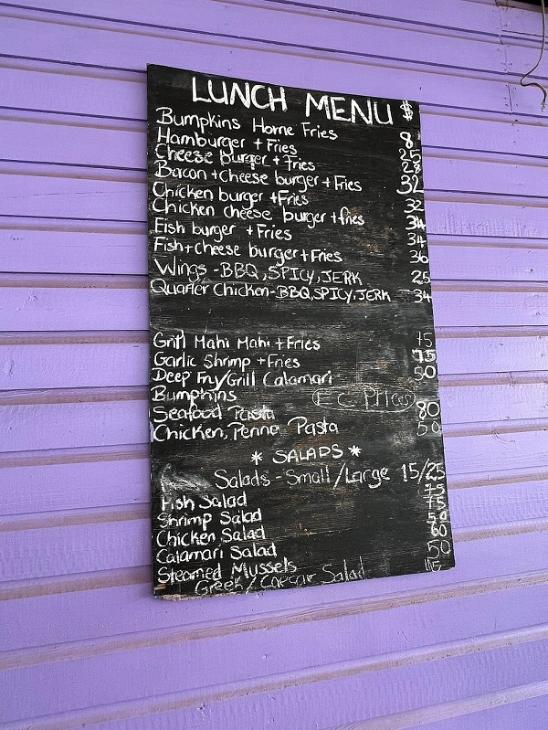 LUNCH MENU $
Bumpkins Home Fries 8
Hamburger + Fries 25
Cheese burger + Fries 28
Bacon + cheese burger + Fries 32
Chicken burger + Fries 32
Chicken cheese burger + fries 34
Fish burger + Fries 34
Fish + cheese burger + Fries 36
Wings - BBQ, SPICY, JERK 25
Quarter Chicken - BBQ, SPICY, JERK 34
Grill Mahi Mahi + Fries 75
Garlic Shrimp + Fries 75
Deep Fry/Grill Calamari 50
Bumpkins E.C. Prices
Seafood Pasta 80
Chicken, Penne, Pasta 50
* SALADS *
Salads - Small/Large 15/25
Fish Salad
Shrimp Salad 75
Chicken Salad 50
Calamari Salad 60
Steamed Mussels 50
Greek / Caesar Salad